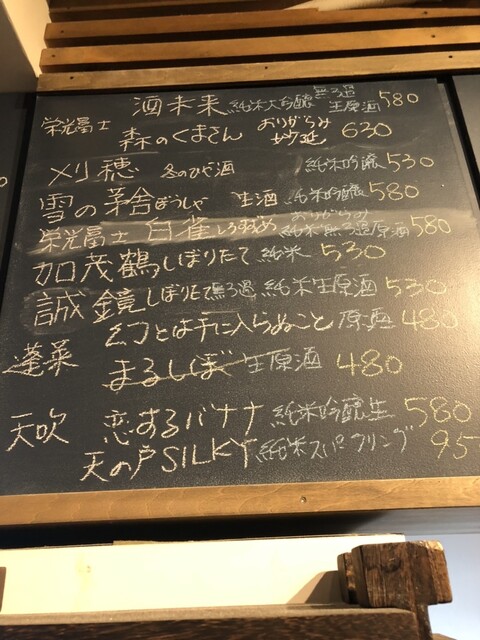 酒未来 純米大吟醸 無ろ過生原酒 580
栄光冨士 森のくまさん おりがらみ 630
刈穂 冬のひや酒 純米吟醸 530
雪の茅舎 ぼうしゃ 生酒 純米吟醸 580
栄光冨士 白雀 しろすずめ おりがらみ 純米無ろ過原酒 580
加茂鶴 しぼりたて 純米 530
誠鏡 しぼりたて 無ろ過 純米生原酒 530
幻とは手に入らぬこと 原酒 480
蓬莱 まるしぼ 生原酒 480
天吹 恋するバナナ 純米吟醸生 580
天の戸 SILKY 純米スパークリング 95